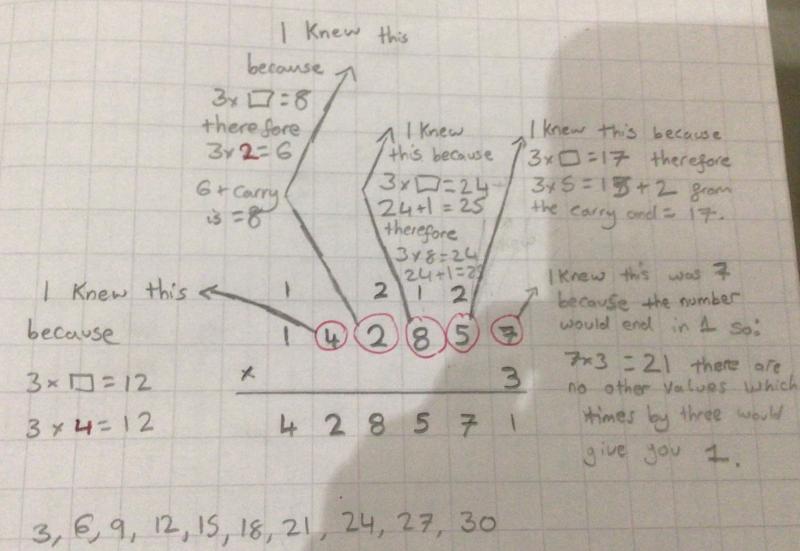 I Knew this
because
3x □ = 8
therefore
3x2=6
6 + carry
is = 8
I Knew
this because
3x□=24
24+1=25
therefore
3x8=24
24+1=25
I knew this because
3x□=17 therefore
3x5=15+2 from
the carry and = 17.
I Knew this
because
3x□=12
3x4=12
I Knew this was 7
because the number
would end in 1 so:
7x3 = 21 there are
no other values which
times by three would
give you 1.
1 2 1 2
1 4 2 8 5 7
x 3
4 2 8 5 7 1
3, 6, 9, 12, 15, 18, 21, 24, 27, 30